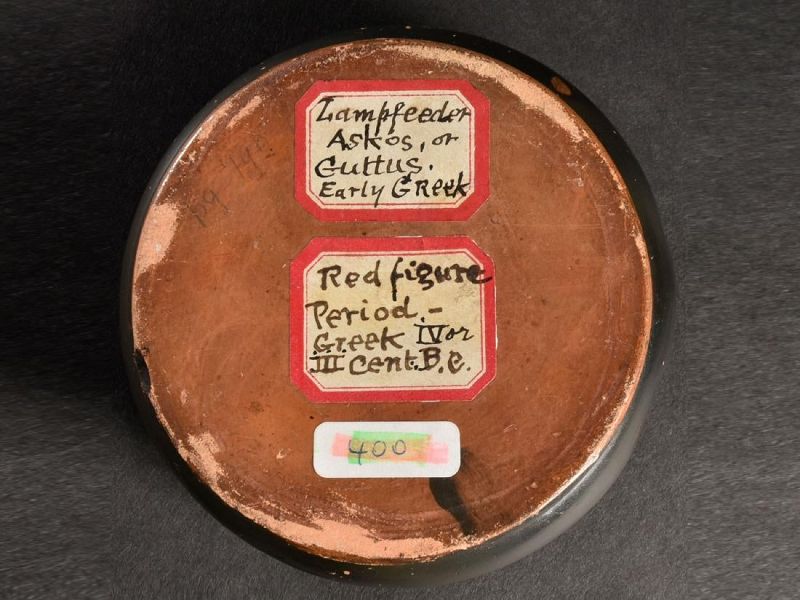 Lampfeeder
Askos, or
Guttus.
Early Greek
Red figure
Period.-
Greek IV or
III Cent. B.C.
400